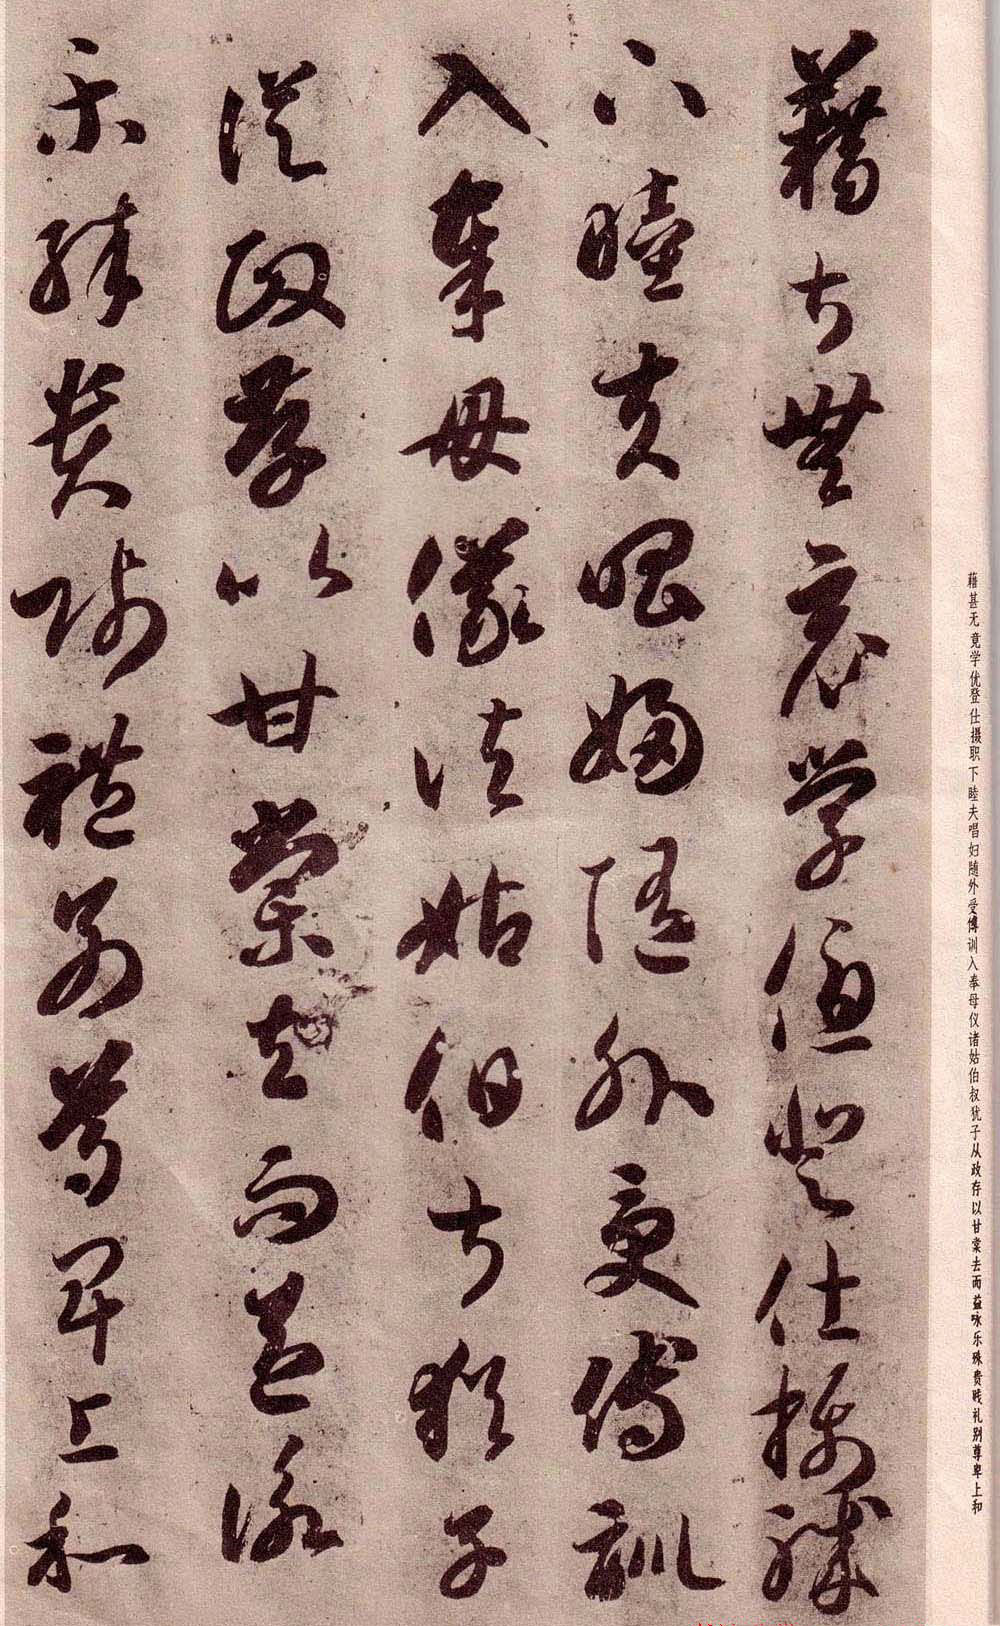 藉甚无竟学优登仕摄职下睦夫唱妇随外受傅训入奉母仪诸姑伯叔犹子从政存以甘棠去而益咏乐殊贵贱礼别尊卑上和
藉甚無竟學優登仕攝職
下睦夫唱婦隨外受傅訓
入奉母儀諸姑伯叔猶子
從政存以甘棠去而益詠
樂殊貴賤禮別尊卑上和